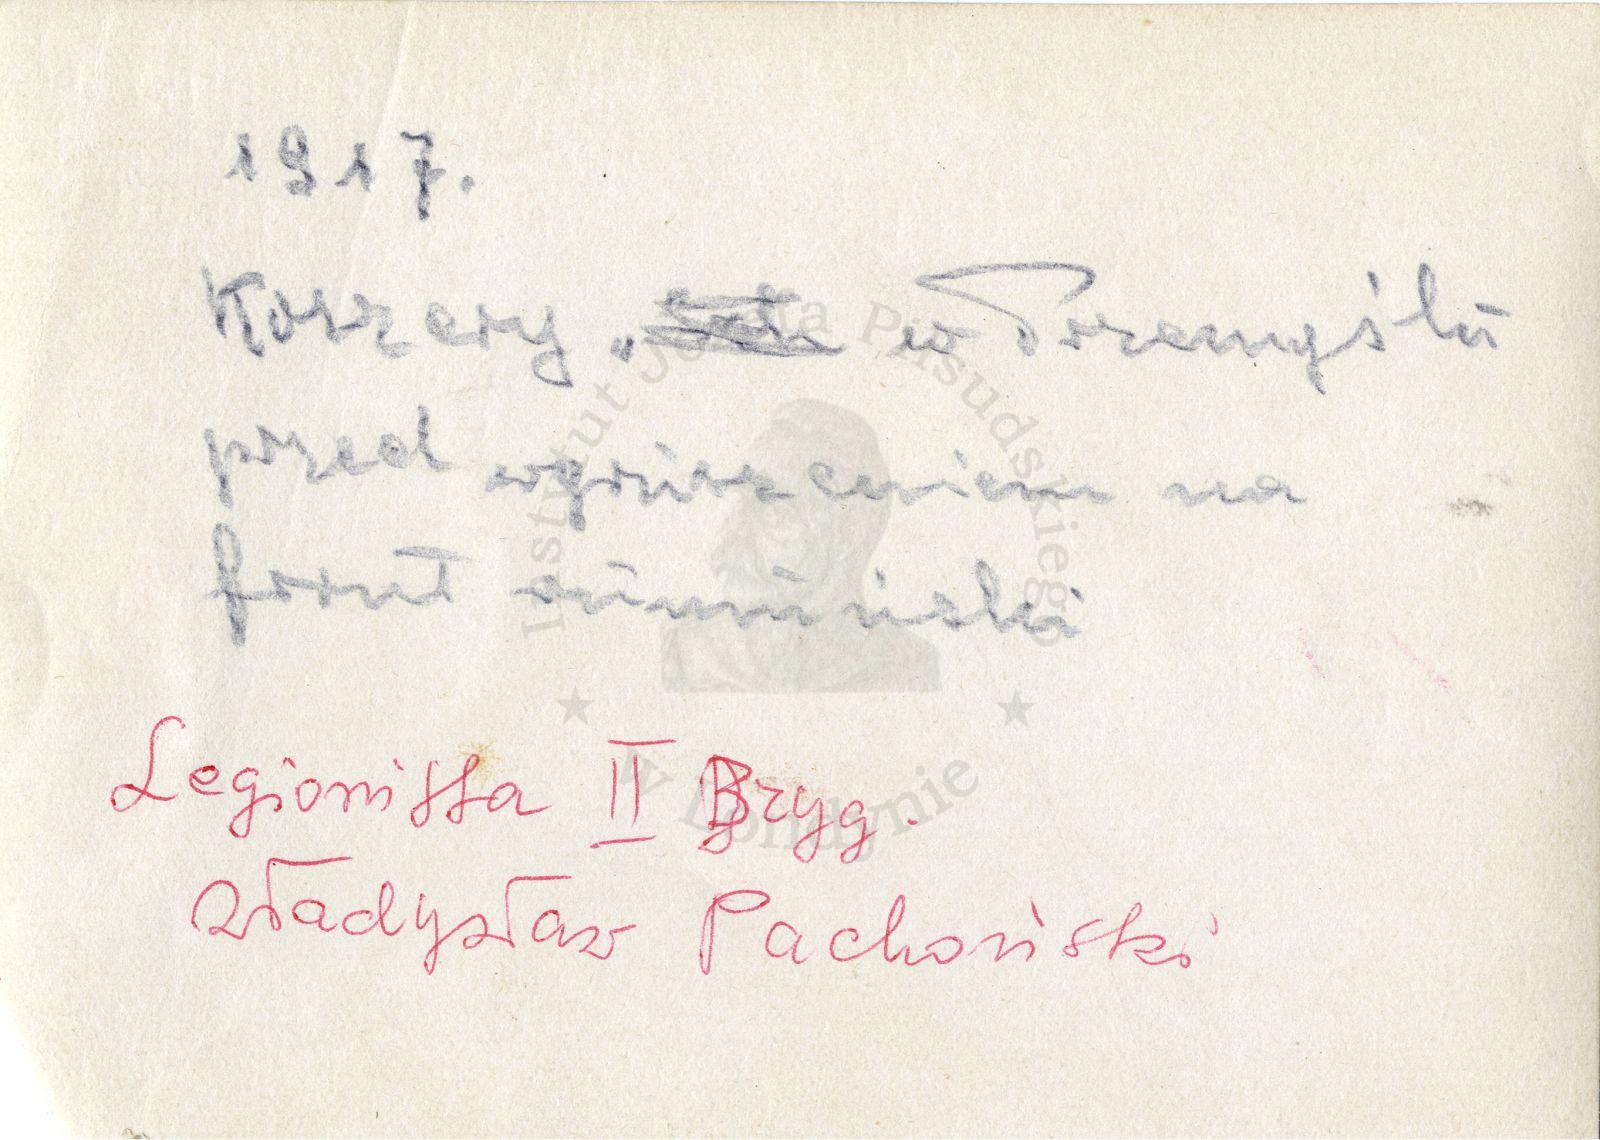 1917.
Koszary „ w Przemyślu
przed wyruszeniem na
front rumuński
Legionista II Bryg.
Władysław Pachoński
Instytut Józefa Piłsudskiego
w Londynie